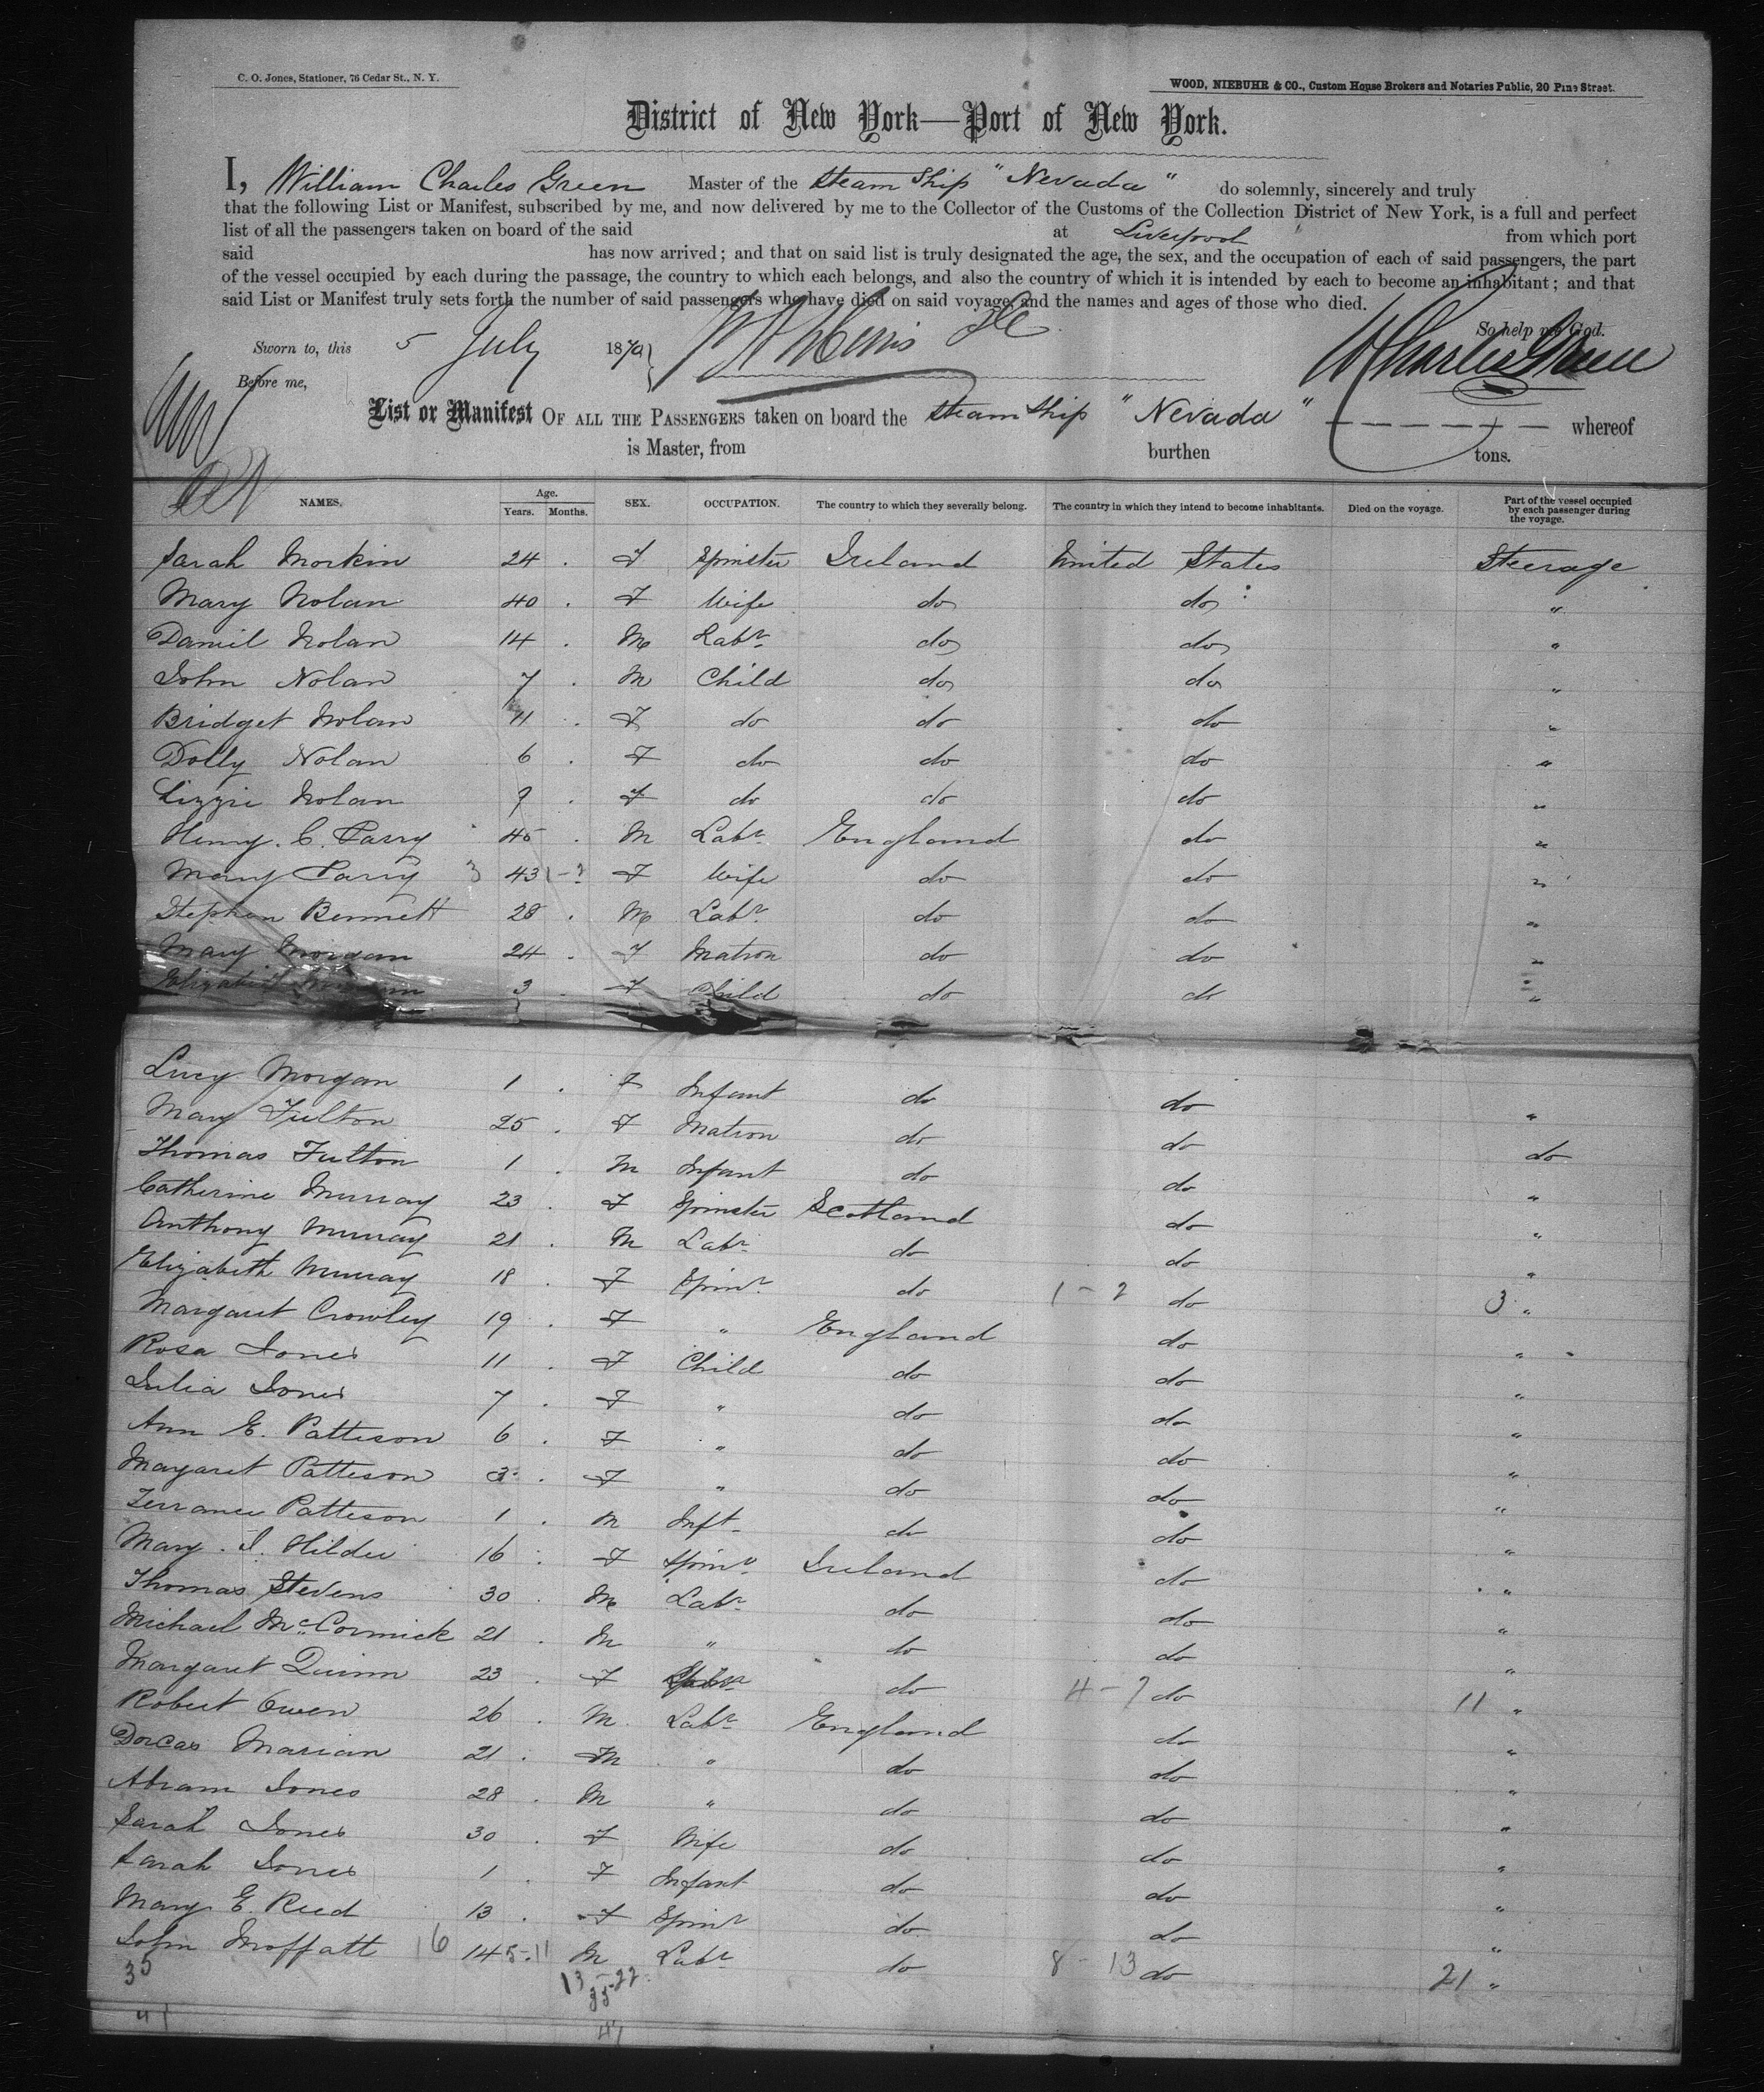 C. O. Jones, Stationer, 76 Cedar St., N. Y.
WOOD, NIEBUHR & CO., Custom House Brokers and Notaries Public, 20 Pine Street.
District of New York—Port of New York.
I, William Charles Green Master of the Steam Ship "Nevada" do solemnly, sincerely and truly
that the following List or Manifest, subscribed by me, and now delivered by me to the Collector of the Customs of the Collection District of New York, is a full and perfect
list of all the passengers taken on board of the said at Liverpool from which port
said has now arrived; and that on said list is truly designated the age, the sex, and the occupation of each of said passengers, the part
of the vessel occupied by each during the passage, the country to which each belongs, and also the country of which it is intended by each to become an inhabitant; and that
said List or Manifest truly sets forth the number of said passengers who have died on said voyage, and the names and ages of those who died.
So help me God.
Sworn to, this 5 July 1870 W Charles Green
Before me,
List or Manifest OF ALL THE PASSENGERS taken on board the Steam Ship "Nevada" whereof
is Master, from burthen tons.
NAMES. Age. Years. Months. SEX. OCCUPATION. The country to which they severally belong. The country in which they intend to become inhabitants. Died on the voyage. Part of the vessel occupied by each passenger during the voyage.
Sarah Morkin 24 F Spinster Ireland United States Steerage
Mary Nolan 40 F Wife do do "
Daniel Nolan 14 M Labr do do "
John Nolan 7 M Child do do "
Bridget Nolan 11 F do do do "
Dolly Nolan 6 F do do do "
Lizzie Nolan 9 F do do do "
Henry. C. Parry 45 M Labr England do "
Mary Parry 3 43 1-2 F Wife do do "
Stephen Bennett 28 M Labr do do "
Mary Morgan 24 F Matron do do "
Elizabeth 3 F Child do do "
Lucy Morgan 1 F Infant do do "
Mary Fulton 25 F Matron do do do
Thomas Fulton 1 M Infant do do "
Catherine Murray 23 F Spinster Scotland do "
Anthony Murray 21 M Labr do do "
Elizabeth Murray 18 F Spinr do 1-2 do 3 "
Margaret Crowley 19 F " England do "
Rosa Jones 11 F Child do do "
Julia Jones 7 F " do do "
Ann E. Patteson 6 F " do do "
Margaret Patteson 3 F " do do "
Terrance Patteson 1 M Inft do do "
Mary. J. Hilder 16 F Spinr Ireland do "
Thomas Stevens 30 M Labr do do "
Michael McCormick 21 M " do do "
Margaret Quinn 23 F do 4-7 do 11 "
Robert Owen 26 M Labr England do "
Dorcas Marian 21 M " do do "
Abram Jones 28 M " do do "
Sarah Jones 30 F Wife do do "
Sarah Jones 1 F Infant do do "
Mary E. Reed 13 F Spinr do do "
John Moffatt 16 14 5-11 M Labr do 8-13 do 21 "
35 13-22
35
41 41